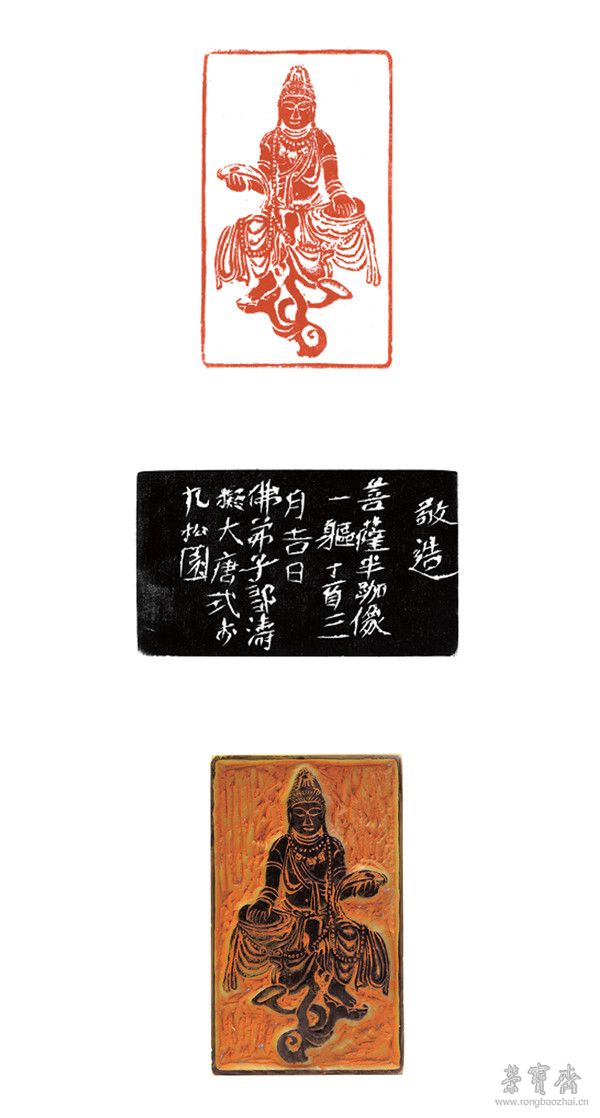 敬造
菩薩半跏像
一軀丁酉三
月吉日
佛弟子鄒濤
擬大唐式於
九松園
榮寶齋
www.rongbaozhai.cn